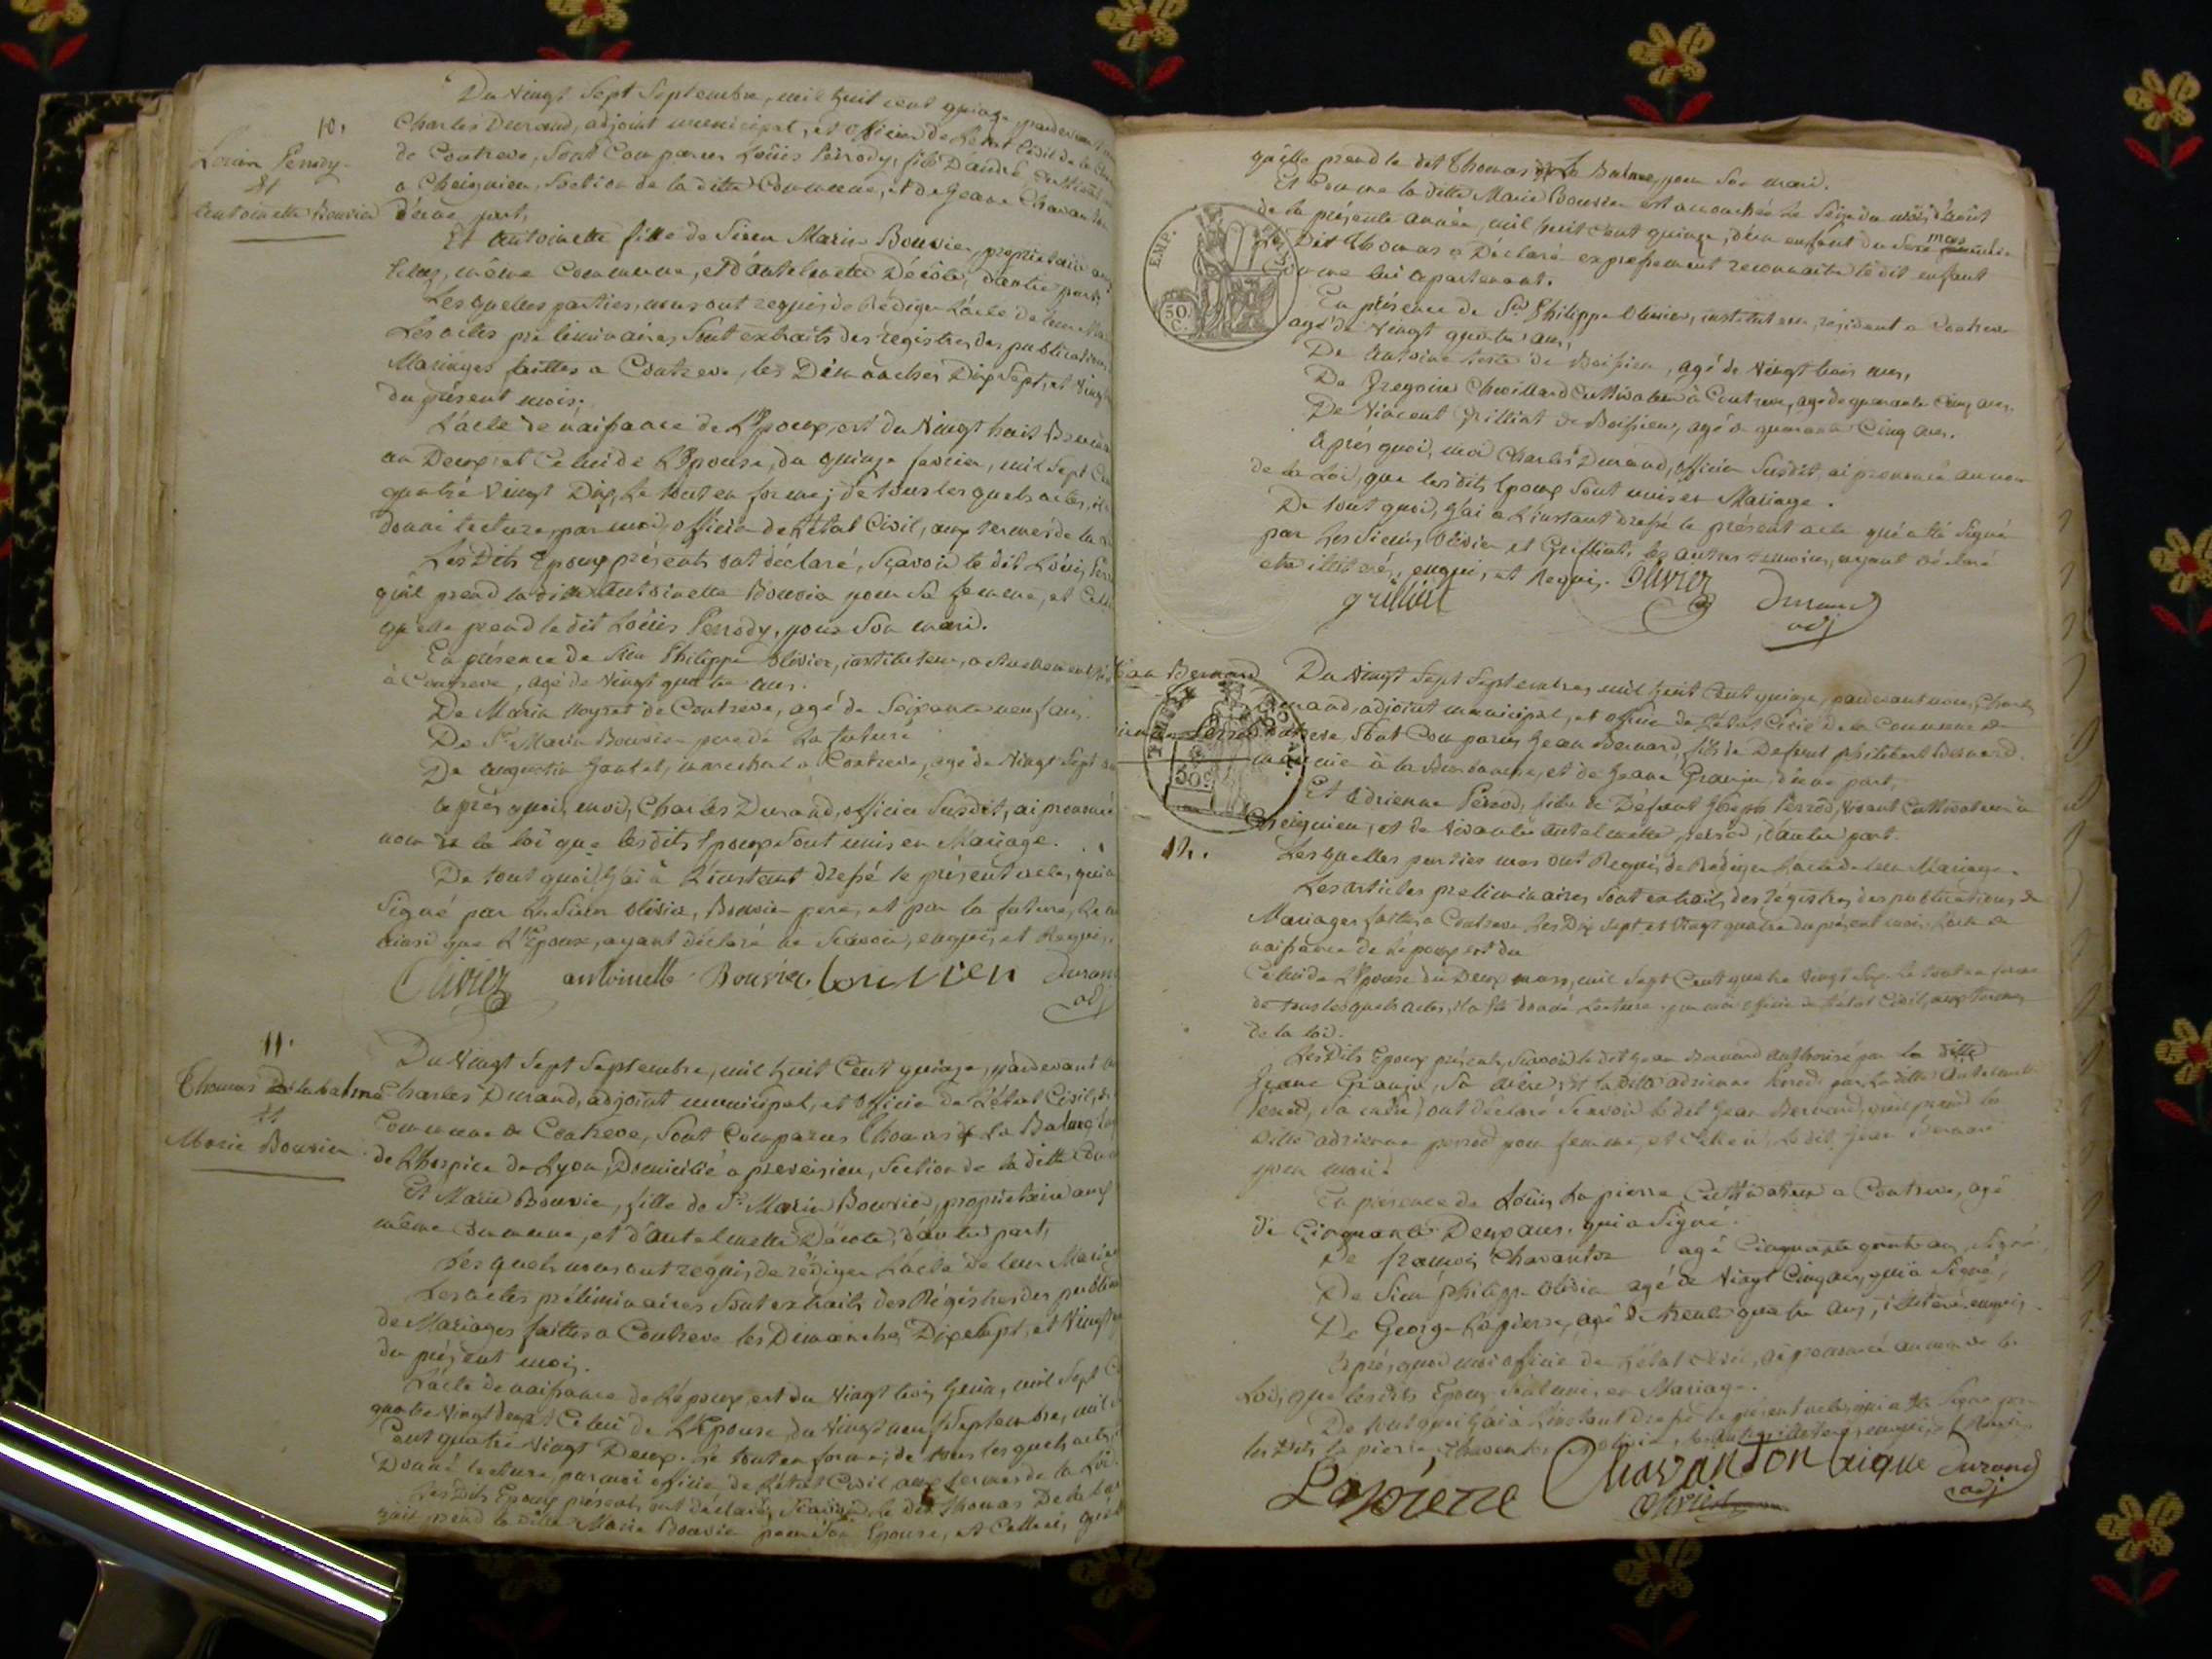 10.
Louis Perrody
Et
Antoinette Bouvier
Du Vingt Sept Septembre, mil huit cent quinze pardevant
Charles Durand, adjoint municipal, et officier de L'état Civil de la
de Contreve, sont Comparus Louis Perrody, fils D'andré,
a Cheignieu, Section de la ditte Commune, et de Jeane
d'une part,
Et Antoinette fille de Sieur Marin Bouvier, proprietaire
même Commune, et d'antelmette Décote, d'autre part,
Lesquelles parties, nous ont requis, de Rédiger L'acte de leur
Les actes préliminaires, sont extraits des registres des publications
Mariages faittes a Contreve, les Dimanches Dix Sept, et Vingt
du présent mois.
L'acte de naissance de L'Epoux, est du Vingt huit
an Deux, et Celui de L'Epouse, du quinze janvier, mil Sept
quatre Vingt Dix, Le tout en forme; de tous lesquels actes,
donné lecture, par moi, officier de L'état Civil, aux termes de la
Les Dits Epoux présents ont déclaré, Sçavoir le dit Louis
qu'il prend la ditte Antoinette Bouvier pour Sa femme, et
qu'elle prend le dit Louis Perrody, pour Son mari.
En présence de Sieur Philippe Olivier, instituteur, actuellement
à Contreve, agé de Vingt quatre ans.
De Marin de Contreve, agé de Soixante neuf ans.
De Sr. Marin Bouvier pere de La future
De augustin marechal a Contreve, agé de Vingt Sept
après quoi, moi, Charles Durand, officier Susdit, ai prononcé
nom de la loi que lesdits Epoux Sont unis en Mariage.
De tout quoi, j'ai à L'instant dressé le présent acte, qui
Signé par Le Sieur Olivier, Bouvier pere, et par la future,
ainsi que L'Epoux, ayant déclaré ne Scavoir, enquis, et Requis.
Olivier antoinette Bouvier bouvier Durand
adj
11.
Thomas De la balme
Et
Marie Bouvier
Du Vingt Sept Septembre, mil huit Cent quinze, pardevant
Charles Durand, adjoint municipal, et officier de L'état Civil,
Commune de Contreve, Sont Comparus Thomas La Balme
de L'hospice de Lyon, Domicilié a preveisieu, Section de la ditte
Et Marie Bouvier, fille de Sr. Marin Bouvier, proprietaire
même Commune, et d'antelmette Décote, d'autre part,
Lesquels nous ont requis, de rédiger L'acte de leur
Les actes préliminaires Sont extraits des Régistres des
de Mariages faittes a Contreve les Dimanches Dix Sept, et Vingt
du présent mois.
L'acte de naissance de L'époux est du Vingt trois Juin, mil Sept
quatre Vingt deux, et Celui de L'Epouse, du Vingt neuf Septembre, mil
Cent quatre Vingt Deux. Le tout en forme; de tous lesquels actes,
Donné lecture, par moi officier de L'état Civil, aux termes de la Loi.
Les Dits Epoux présents, ont déclaré, Scavoir, le dit Thomas De la
qu'il prend la ditte Marie Bouvier pour Son Epouse, et Celle ci,
qu'elle prend le dit Thomas La Balme, pour Son mari.
Et Comme la ditte Marie Bouvier est accouchée le Seize du mois
de la présente année, mil huit Cent quinze, d'un enfant du Sexe masculin
Le Dit Thomas a Déclaré expressement reconnaitre le dit enfant
Comme lui apartenant.
En présence de Sr. Philippe Olivier, instituteur, résident a Contreve
agé de Vingt quatre ans,
De Antoine de Boissieu, agé de Vingt trois ans,
De Chevillard Cultivateur à Contreve, agé de quarante Cinq ans.
De Vincent Grilliat de Boissieu, agé de quarante Cinq ans.
après quoi, moi Charles Durand, officier Susdit, ai prononcé au nom
de la Loi, que lesdits Epoux Sont unis en Mariage.
De tout quoi, j'ai a L'instant dressé le présent acte qui a été Signé
par Les Sieurs Olivier et Grilliat, les autres temoins, ayant déclaré
etre illitérés, enquis, et Requis.
Olivier
Durand
adj
EMP.
50.
C.
Jean Bernard
12.
Du Vingt Sept Septembre, mil huit Cent quinze, pardevant nous, Charles
Durand, adjoint municipal, et officier de L'état Civil de la Commune de
Contreve, Sont Comparus Jean Bernard, fils de Defunt Philibert Bernard,
et de Jeane Granju, d'une part,
Et Adrienne Perrod, fille de Défunt Joseph Perrod, Vivant Cultivateur a
Cheignieu, et de Vivante Antelmette perrod, d'autre part.
Lesquelles parties nous ont Requis, de Rédiger L'acte de leur Mariage.
Les articles preliminaires, Sont extraits, des Régistres des publications de
Mariages faittes a Contreve Les Dix Sept, et Vingt quatre du présent mois. L'acte de
naissance de L'époux est du
Celui de L'Epouse du Deux mars, mil Sept Cent quatre Vingt Le tout en forme
de tous lesquels actes, il a été donné Lecture par moi officier de L'état Civil, aux termes
de la Loi.
Les Dits Epoux présents, Scavoir le dit Jean Bernard authorisé par la ditte
Jeane Granju, Sa mère, et la ditte adrienne Perrod par la ditte Antelmette
Perrod, Sa mère) ont déclaré Scavoir le dit Jean Bernard, qu'il prend la
ditte adrienne perrod pour femme, et Celle ci, le dit Jean Bernard
pour mari.
En présence de Louis Lapierre Cultivateur a Contreve, agé
de Cinquante Deux ans. qui a Signé.
De françois Chavanton agé Cinquante quatre ans, Signé
De Sieur philippe Olivier agé de Vingt Cinq ans, qui a Signé,
De George Lapierre, agé de trente quatre ans, illitéré, enquis.
après quoi moi officier de L'état Civil, ai prononcé au nom de la
Loi, que lesdits Epoux Sont unis en Mariage.
De tout quoi j'ai à L'instant Dressé le présent acte, qui a été Signé par
les Dits Lapierre, Chavanton, Olivier,
Lapierre Chavanton Durand
Olivier adj
50c.